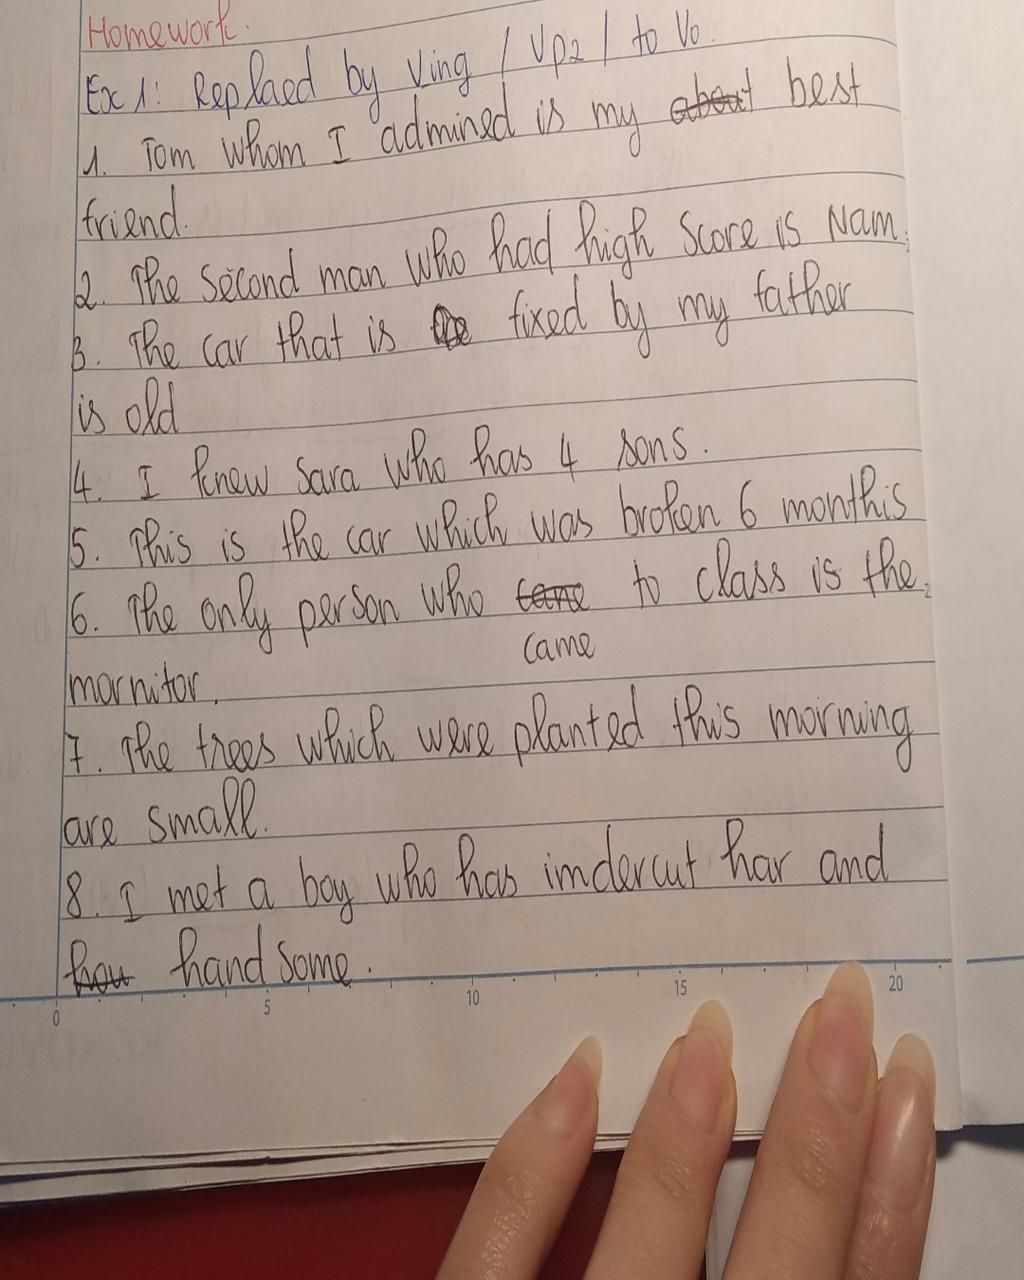 Homework.
Ex 1: Replaed by Ving / Vp2 / to Vo.
1. Tom whom I admined is my about best
friend.
2. The second man who had high score is Nam.
3. The car that is the fixed by my father
is old
4. I knew Sara who has 4 sons.
5. This is the car which was broken 6 monthis
6. The only person who tane to class is the
came
mornitor.
7. The trees which were planted this morning
are small.
8. I met a boy who has imdercut har and
hau hand some.
0 5 10 15 20